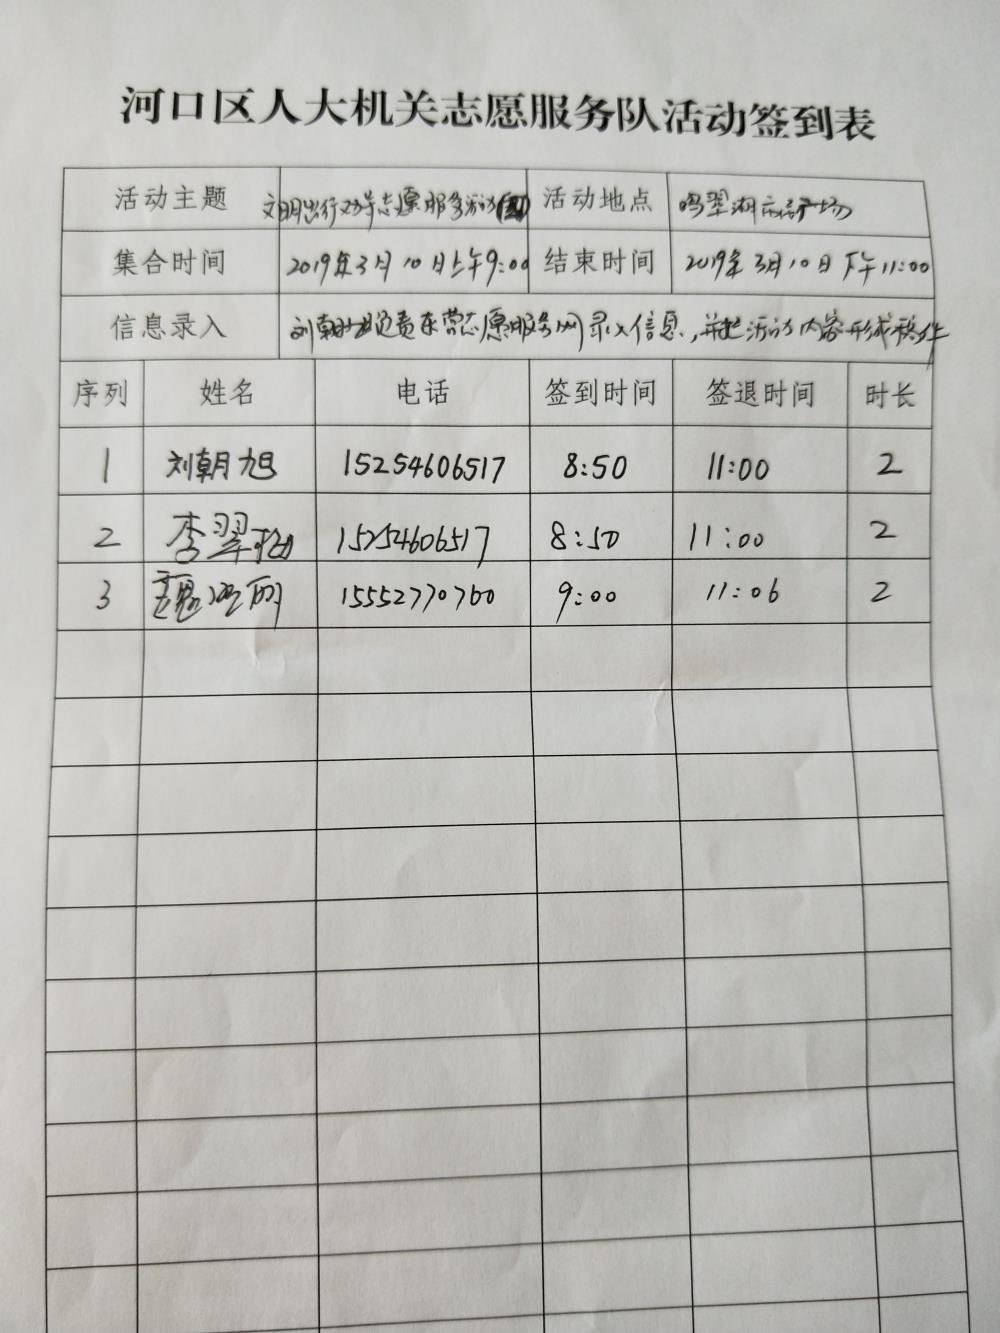 河口区人大机关志愿服务队活动签到表
活动主题 文明出行劝导志愿服务活动 活动地点 鸣翠湖广场
集合时间 2019年3月10日上午9:00 结束时间 2019年3月10日下午11:00
信息录入 刘朝旭负责东营志愿服务网录入信息,并把活动内容形成稿件
序列 姓名 电话 签到时间 签退时间 时长
1 刘朝旭 15254606517 8:50 11:00 2
2 李翠松 15254606517 8:50 11:00 2
3 魏 15552770760 9:00 11:06 2